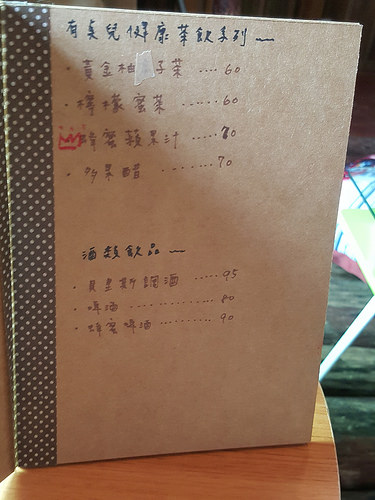 有桌兒健康茶飲系列~
·黃金柚子茶 ····60
·檸檬蜜茶 ·····60
蜂蜜蘋果汁 ·····70
·多果醋 ·······70
酒類飲品~
·貝里斯調酒 ·····95
·啤酒 ·············80
·蜂蜜啤酒 ·········90